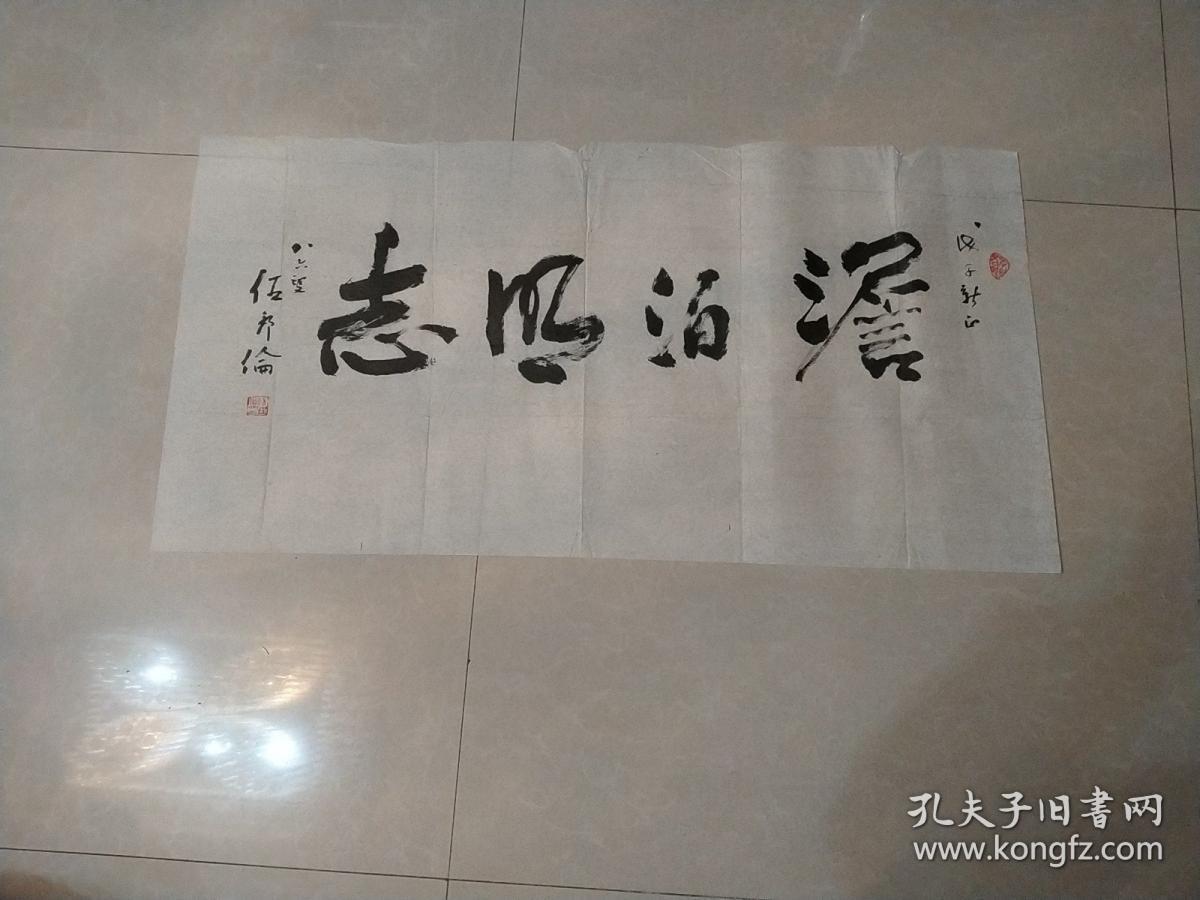 戊子新正
澹泊明志
八六叟
伍郡倫
孔夫子旧書网
www.kongfz.com